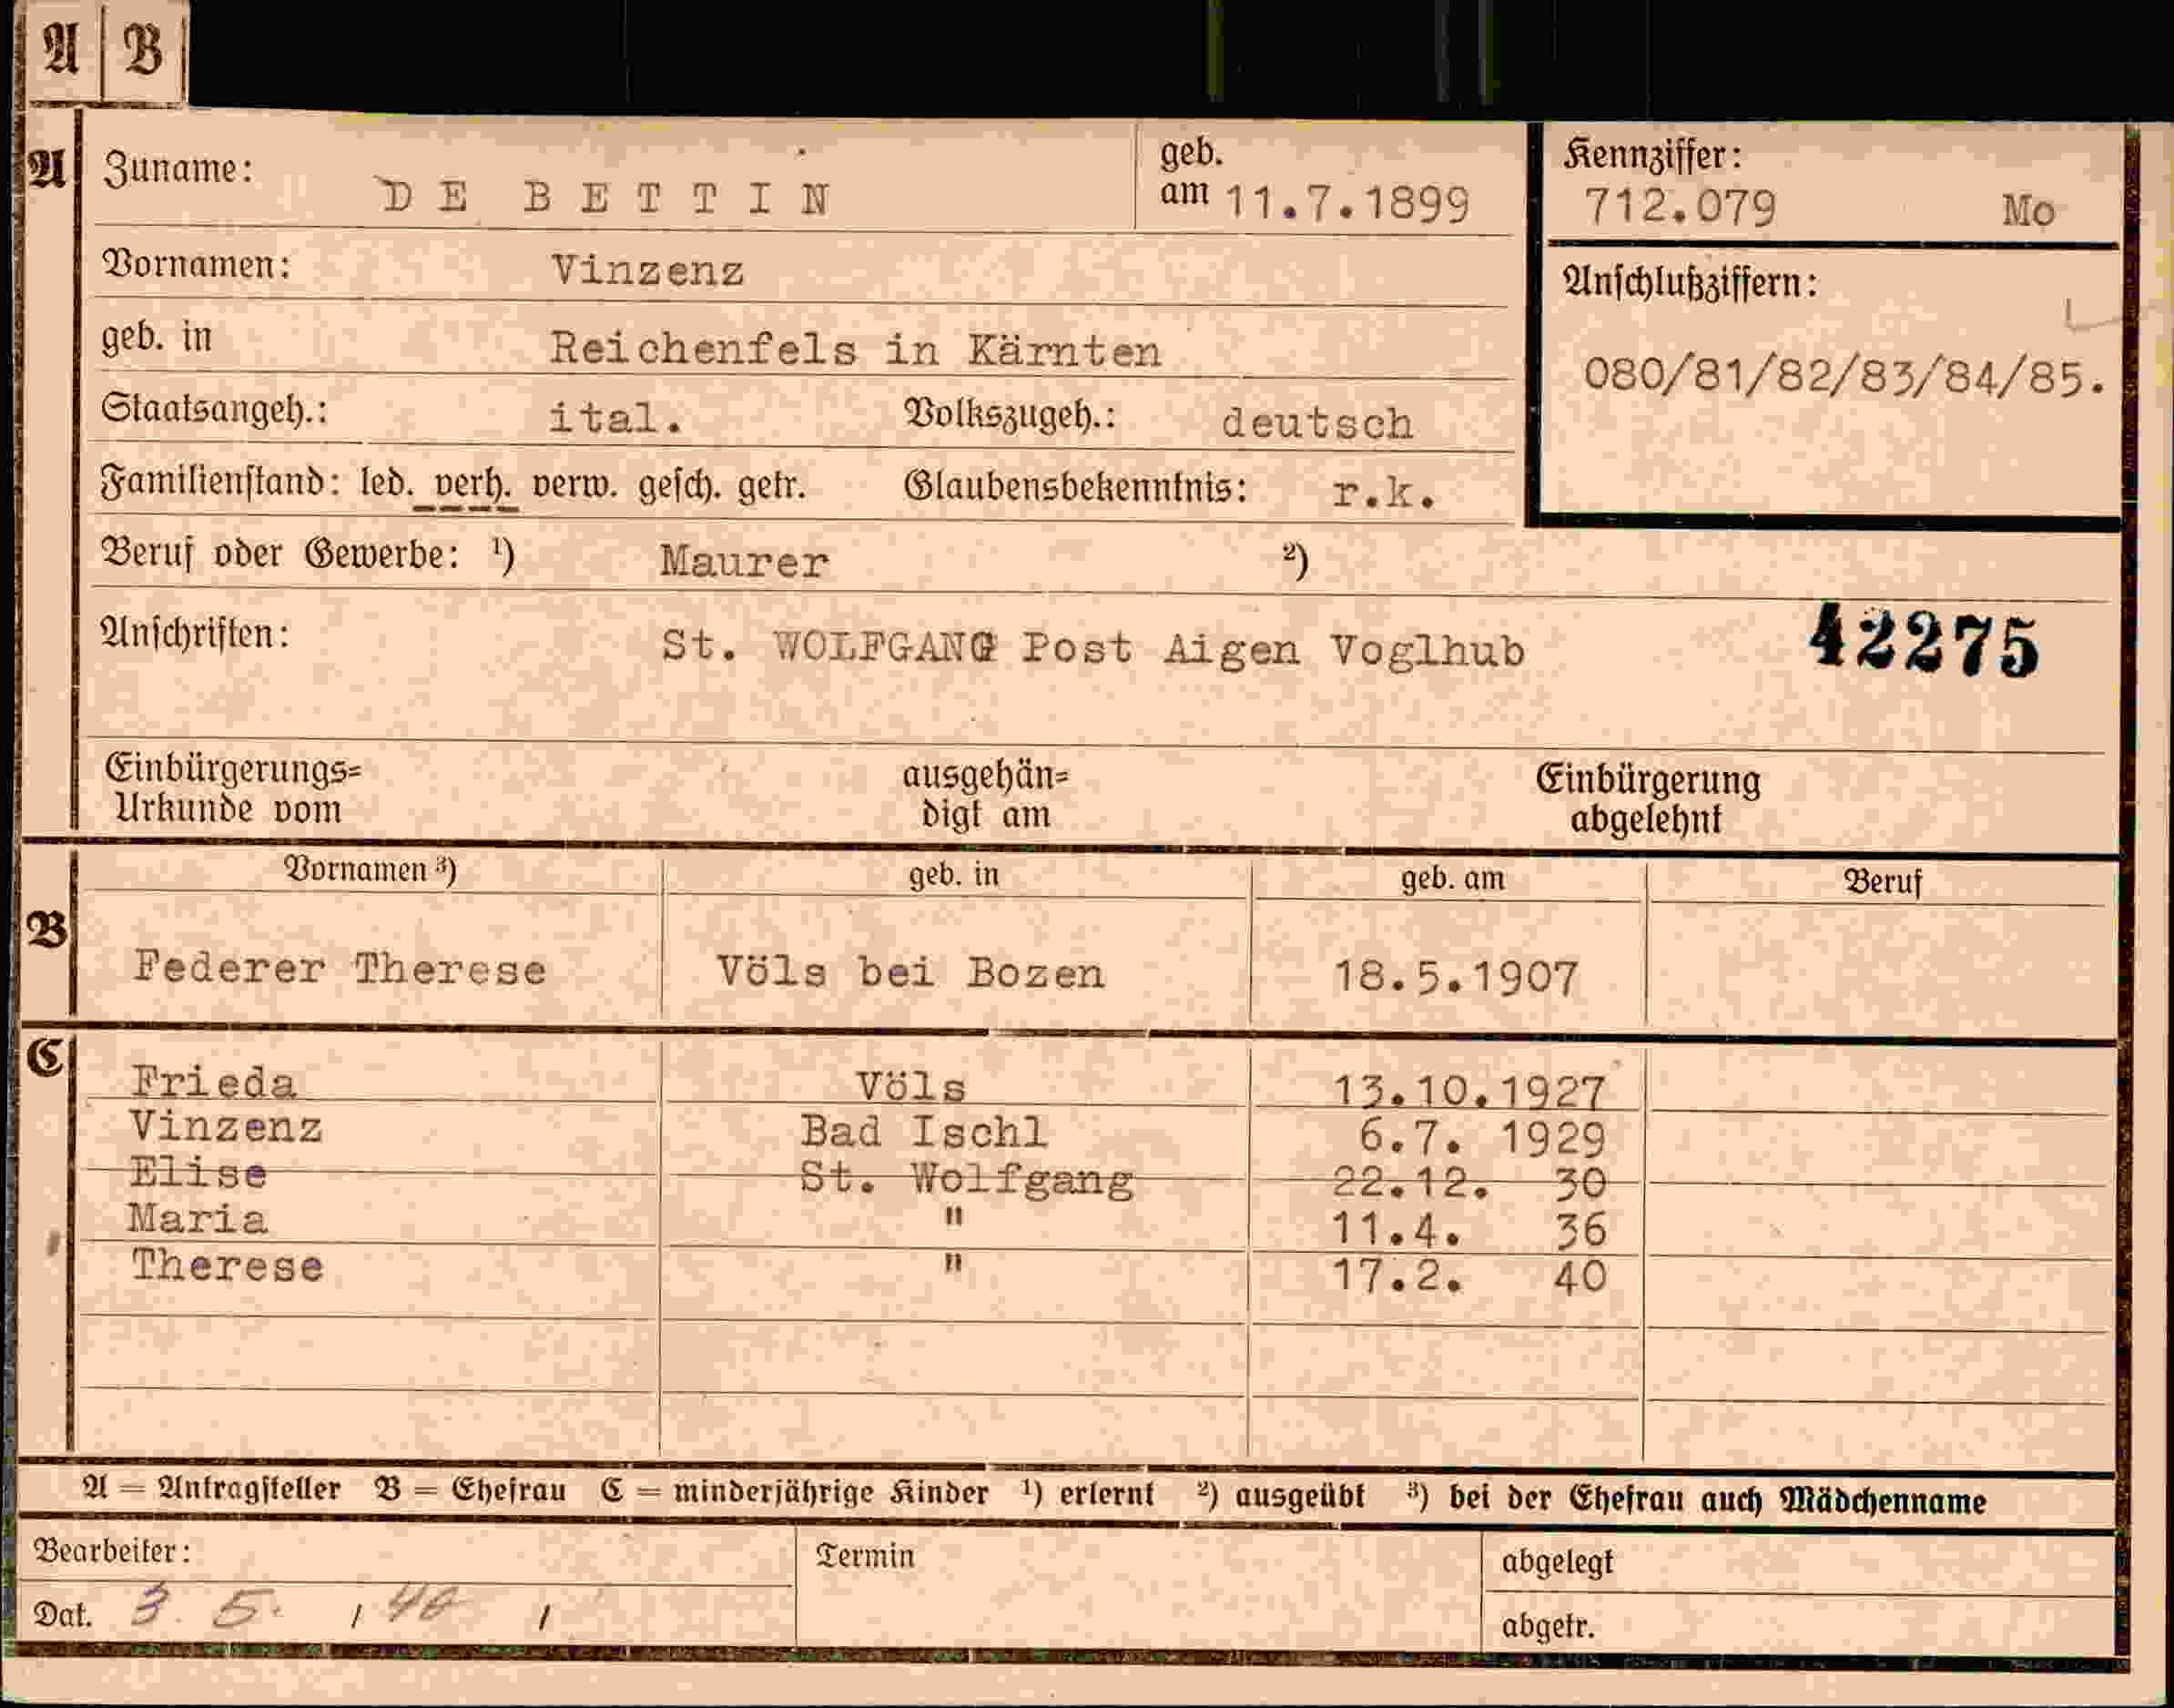 A B
A Zuname: DE BETTIN geb. am 11.7.1899 Kennziffer: 712.079 Mo
Vornamen: Vinzenz Anschlußziffern:
geb. in Reichenfels in Kärnten 080/81/82/83/84/85.
Staatsangeh.: ital. Volkszugeh.: deutsch
Familienstand: led. verh. verw. gesch. getr. Glaubensbekenntnis: r.k.
Beruf oder Gewerbe: ¹) Maurer ²)
Anschriften: St. WOLFGANG Post Aigen Voglhub 42275
Einbürgerungs= ausgehän= Einbürgerung
Urkunde vom digt am abgelehnt
Vornamen ³) geb. in geb. am Beruf
B Federer Therese Völs bei Bozen 18.5.1907
C Frieda Völs 13.10.1927
Vinzenz Bad Ischl 6.7. 1929
Elise St. Wolfgang 22.12. 30
Maria " 11.4. 36
Therese " 17.2. 40
A = Antragsteller B = Ehefrau C = minderjährige Kinder ¹) erlernt ²) ausgeübt ³) bei der Ehefrau auch Mädchenname
Bearbeiter: Termin abgelegt
Dat. 3. 5. / / abgetr.